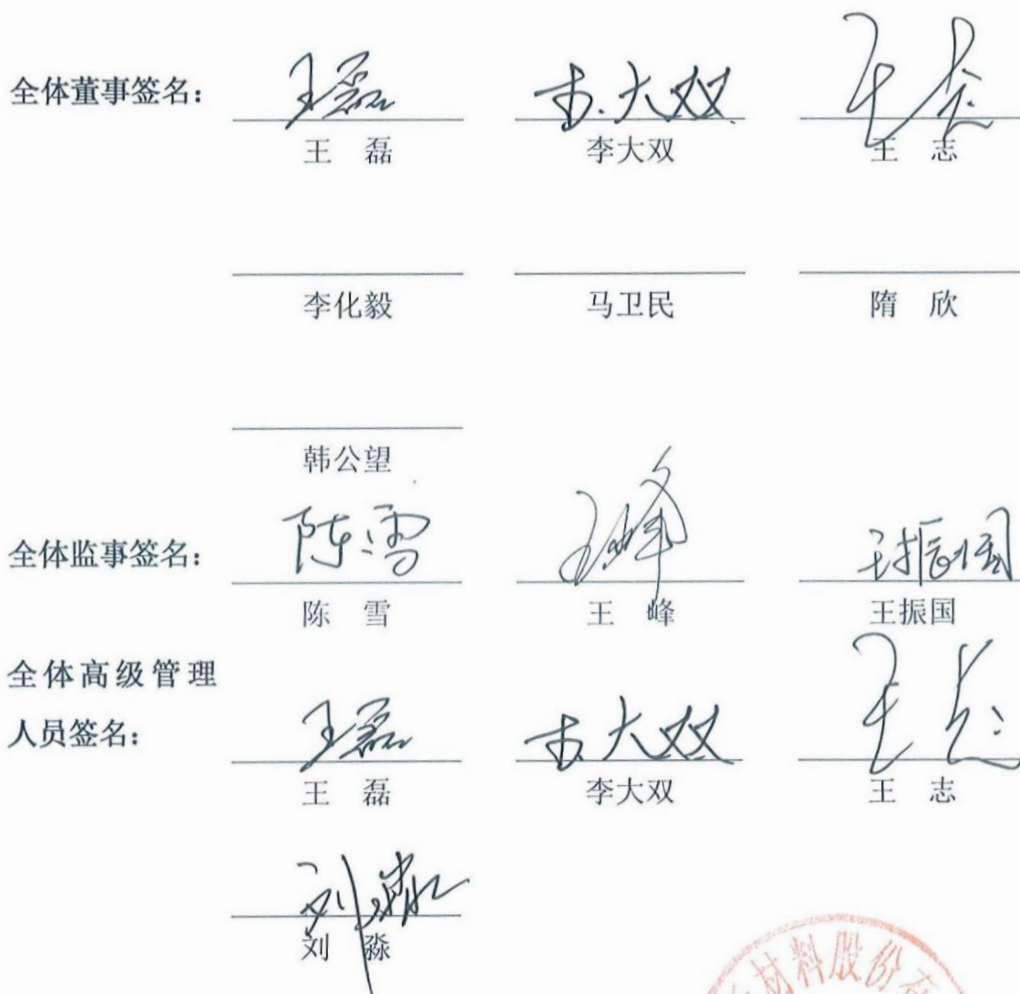 全体董事签名： 王磊 李大双 王志
王 磊 李大双 王 志
李化毅 马卫民 隋 欣
韩公望
全体监事签名： 陈雪 王峰 王振国
陈 雪 王 峰 王振国
全体高级管理
人员签名： 王磊 李大双 王志
王 磊 李大双 王 志
刘淼
刘 淼
材料股份有